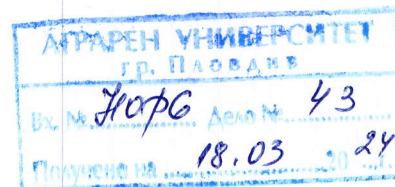 АГРАРЕН УНИВЕРСИТЕТ
гр. Пловдив
Вх. № НОФ6 Дело № 43
Получено на 18.03 20 24 г.